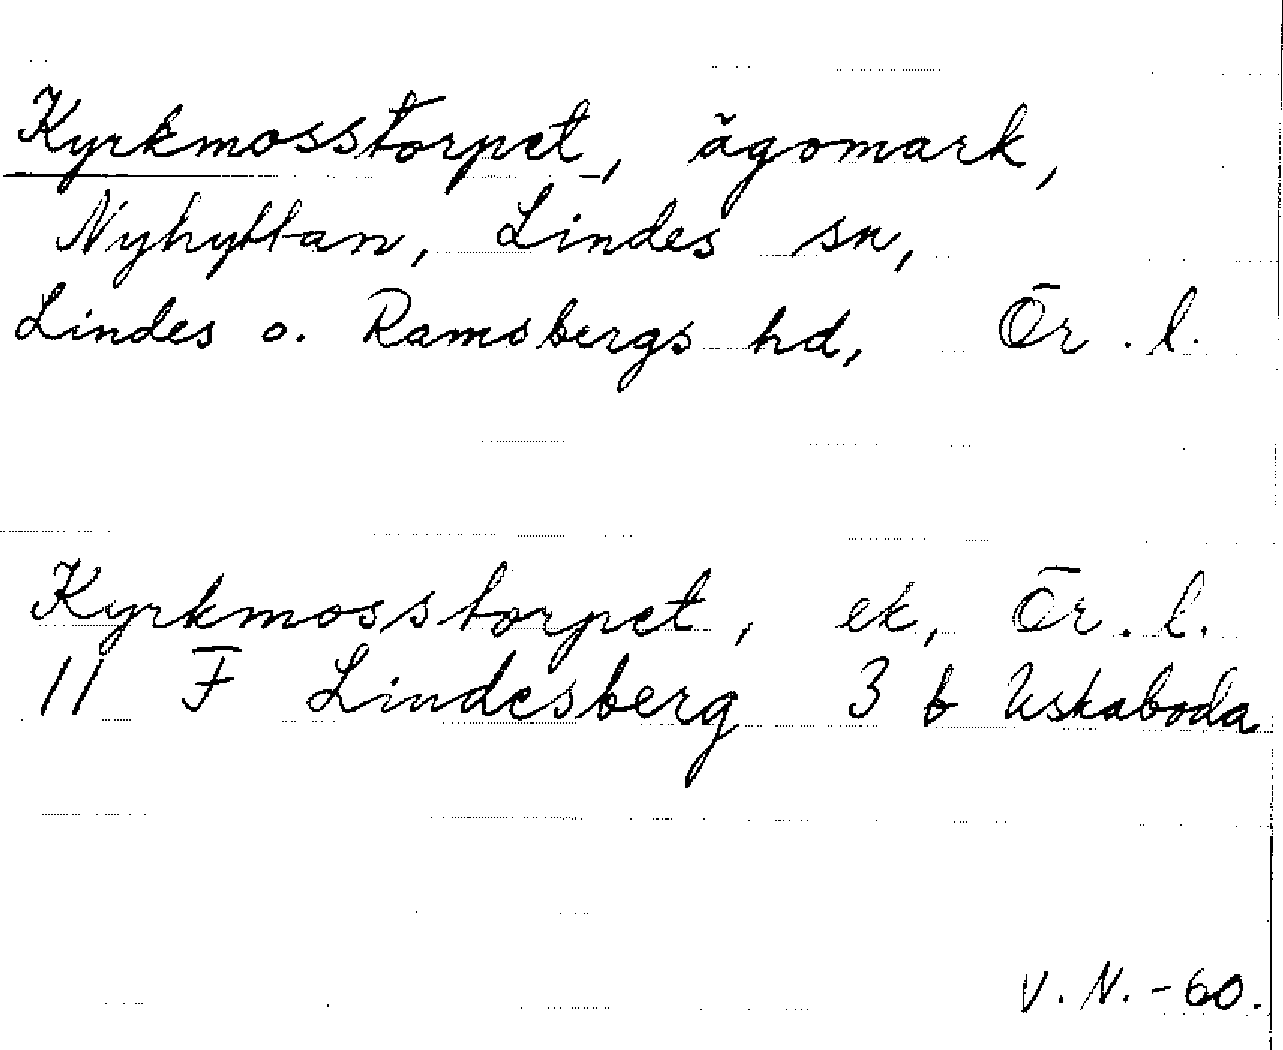 Kyrkmosstorpet, ägomark,
Nyhyttan, Lindes sn,
Lindes o. Ramsbergs hd, Ör. l.
Kyrkmosstorpet, ek, Ör. l.
11 F Lindesberg 3 b Uskaboda
V. N. -60.